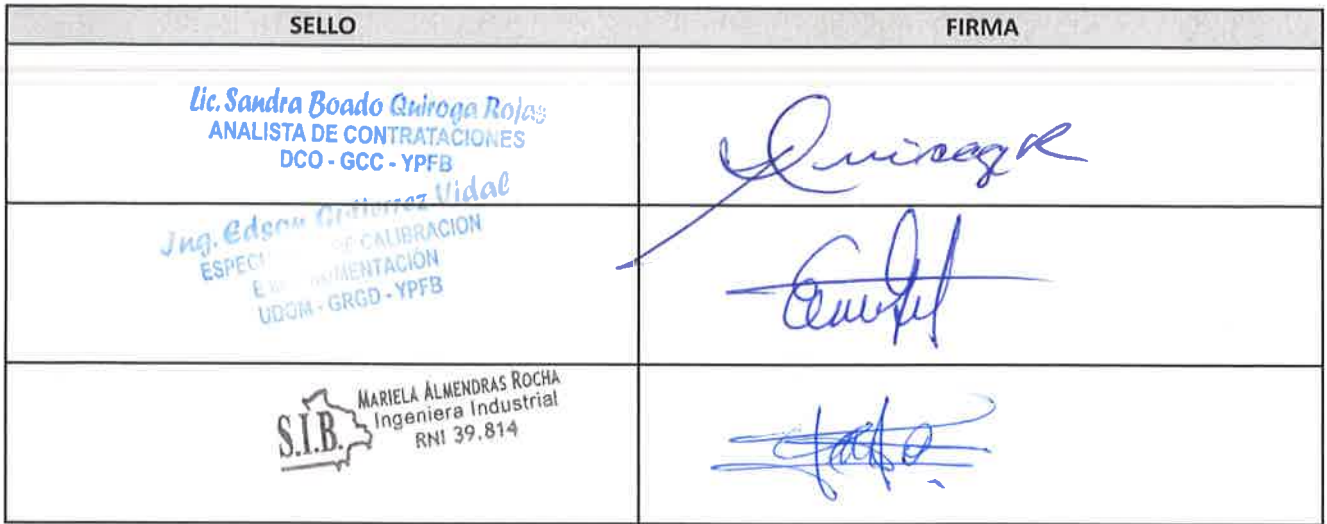 SELLO
FIRMA
Lic. Sandra Boado Quiroga Rojas
ANALISTA DE CONTRATACIONES
DCO - GCC - YPFB
QuirogaR
Ing. Edson Gutierrez Vidal
DE CALIBRACION
E
UDOM - GRGD - YPFB
S.I.B.
MARIELA ALMENDRAS ROCHA
Ingeniera Industrial
RNI 39.814